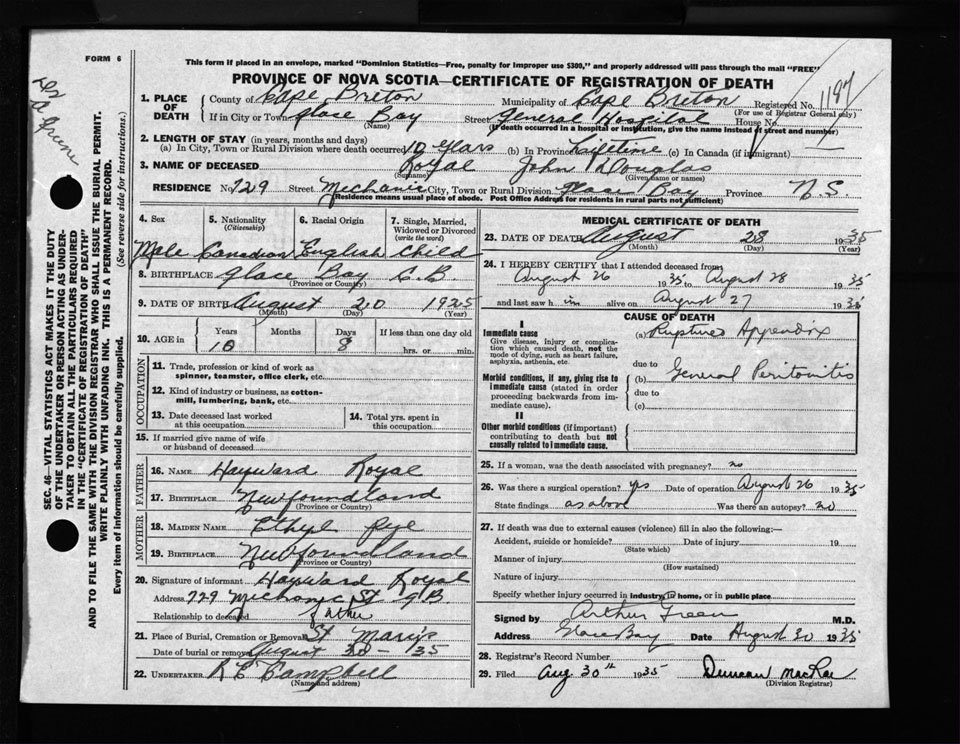 FORM 6
This form if placed in an envelope, marked "Dominion Statistics—Free, penalty for improper use $300," and properly addressed will pass through the mail "FREE"
PROVINCE OF NOVA SCOTIA—CERTIFICATE OF REGISTRATION OF DEATH
1197
Dr A Greene
SEC. 46—VITAL STATISTICS ACT MAKES IT THE DUTY
OF THE UNDERTAKER OR PERSON ACTING AS UNDER-
TAKER TO OBTAIN ALL THE PARTICULARS REQUIRED
IN THE "CERTIFICATE OF REGISTRATION OF DEATH"
AND TO FILE THE SAME WITH THE DIVISION REGISTRAR WHO SHALL ISSUE THE BURIAL PERMIT.
WRITE PLAINLY WITH UNFADING INK. THIS IS A PERMANENT RECORD.
Every item of Information should be carefully supplied. (See reverse side for instructions.)
1. PLACE OF DEATH
County of Cape Breton Municipality of Cape Breton Registered No.
(For use of Registrar General only)
If in City or Town Glace Bay Street General Hospital House No.
(Name) (If death occurred in a hospital or institution, give the name instead of street and number)
2. LENGTH OF STAY (in years, months and days)
(a) In City, Town or Rural Division where death occurred 10 years (b) In Province Lifetime (c) In Canada (if immigrant)
3. NAME OF DECEASED Royal John Douglas
(Surname) (Given name or names)
RESIDENCE No. 729 Street Mechanic City, Town or Rural Division Glace Bay Province N.S.
(Residence means usual place of abode. Post Office Address for residents in rural parts not sufficient)
4. Sex 5. Nationality (Citizenship) 6. Racial Origin 7. Single, Married, Widowed or Divorced (write the word)
Male Canadian English Child
8. BIRTHPLACE Glace Bay C.B.
(Province or Country)
9. DATE OF BIRTH August 20 1925
(Month) (Day) (Year)
10. AGE in Years Months Days If less than one day old
10 8 hrs. or min.
OCCUPATION
11. Trade, profession or kind of work as
spinner, teamster, office clerk, etc.
12. Kind of industry or business, as cotton-
mill, lumbering, bank, etc.
13. Date deceased last worked
at this occupation
14. Total yrs. spent in
this occupation
15. If married give name of wife
or husband of deceased
FATHER
16. NAME Hayward Royal
17. BIRTHPLACE Newfoundland
(Province or Country)
MOTHER
18. MAIDEN NAME Ethyl Pye
19. BIRTHPLACE Newfoundland
(Province or Country)
20. Signature of informant Hayward Royal
Address 729 Mechanic St G.B.
Relationship to deceased father
21. Place of Burial, Cremation or Removal St Mary's
Date of burial or removal August 30 - 35
22. UNDERTAKER R E Campbell
(Name and address)
MEDICAL CERTIFICATE OF DEATH
23. DATE OF DEATH August 28 1935
(Month) (Day) (Year)
24. I HEREBY CERTIFY that I attended deceased from
August 26 1935 to August 28 1935
and last saw h im alive on August 27 1935
CAUSE OF DEATH
I
Immediate cause
Give disease, injury or complica-
tion which caused death, not the
mode of dying, such as heart failure,
asphyxia, asthenia, etc.
(a) Ruptured Appendix
due to
Morbid conditions, if any, giving rise to
immediate cause (stated in order
proceeding backwards from im-
mediate cause).
(b) General Peritonitis
due to
(c)
II
Other morbid conditions (if important)
contributing to death but not
causally related to immediate cause.
25. If a woman, was the death associated with pregnancy? no
26. Was there a surgical operation? yes Date of operation August 26 1935
State findings as above Was there an autopsy? no
27. If death was due to external causes (violence) fill in also the following:—
Accident, suicide or homicide? Date of injury 19
(State which)
Manner of injury
(How sustained)
Nature of injury
Specify whether injury occurred in industry, in home, or in public place
Signed by Arthur Green M.D.
Address Glace Bay Date August 30 1935
28. Registrar's Record Number
29. Filed Aug 30th 1935 Duncan MacRae
(Division Registrar)